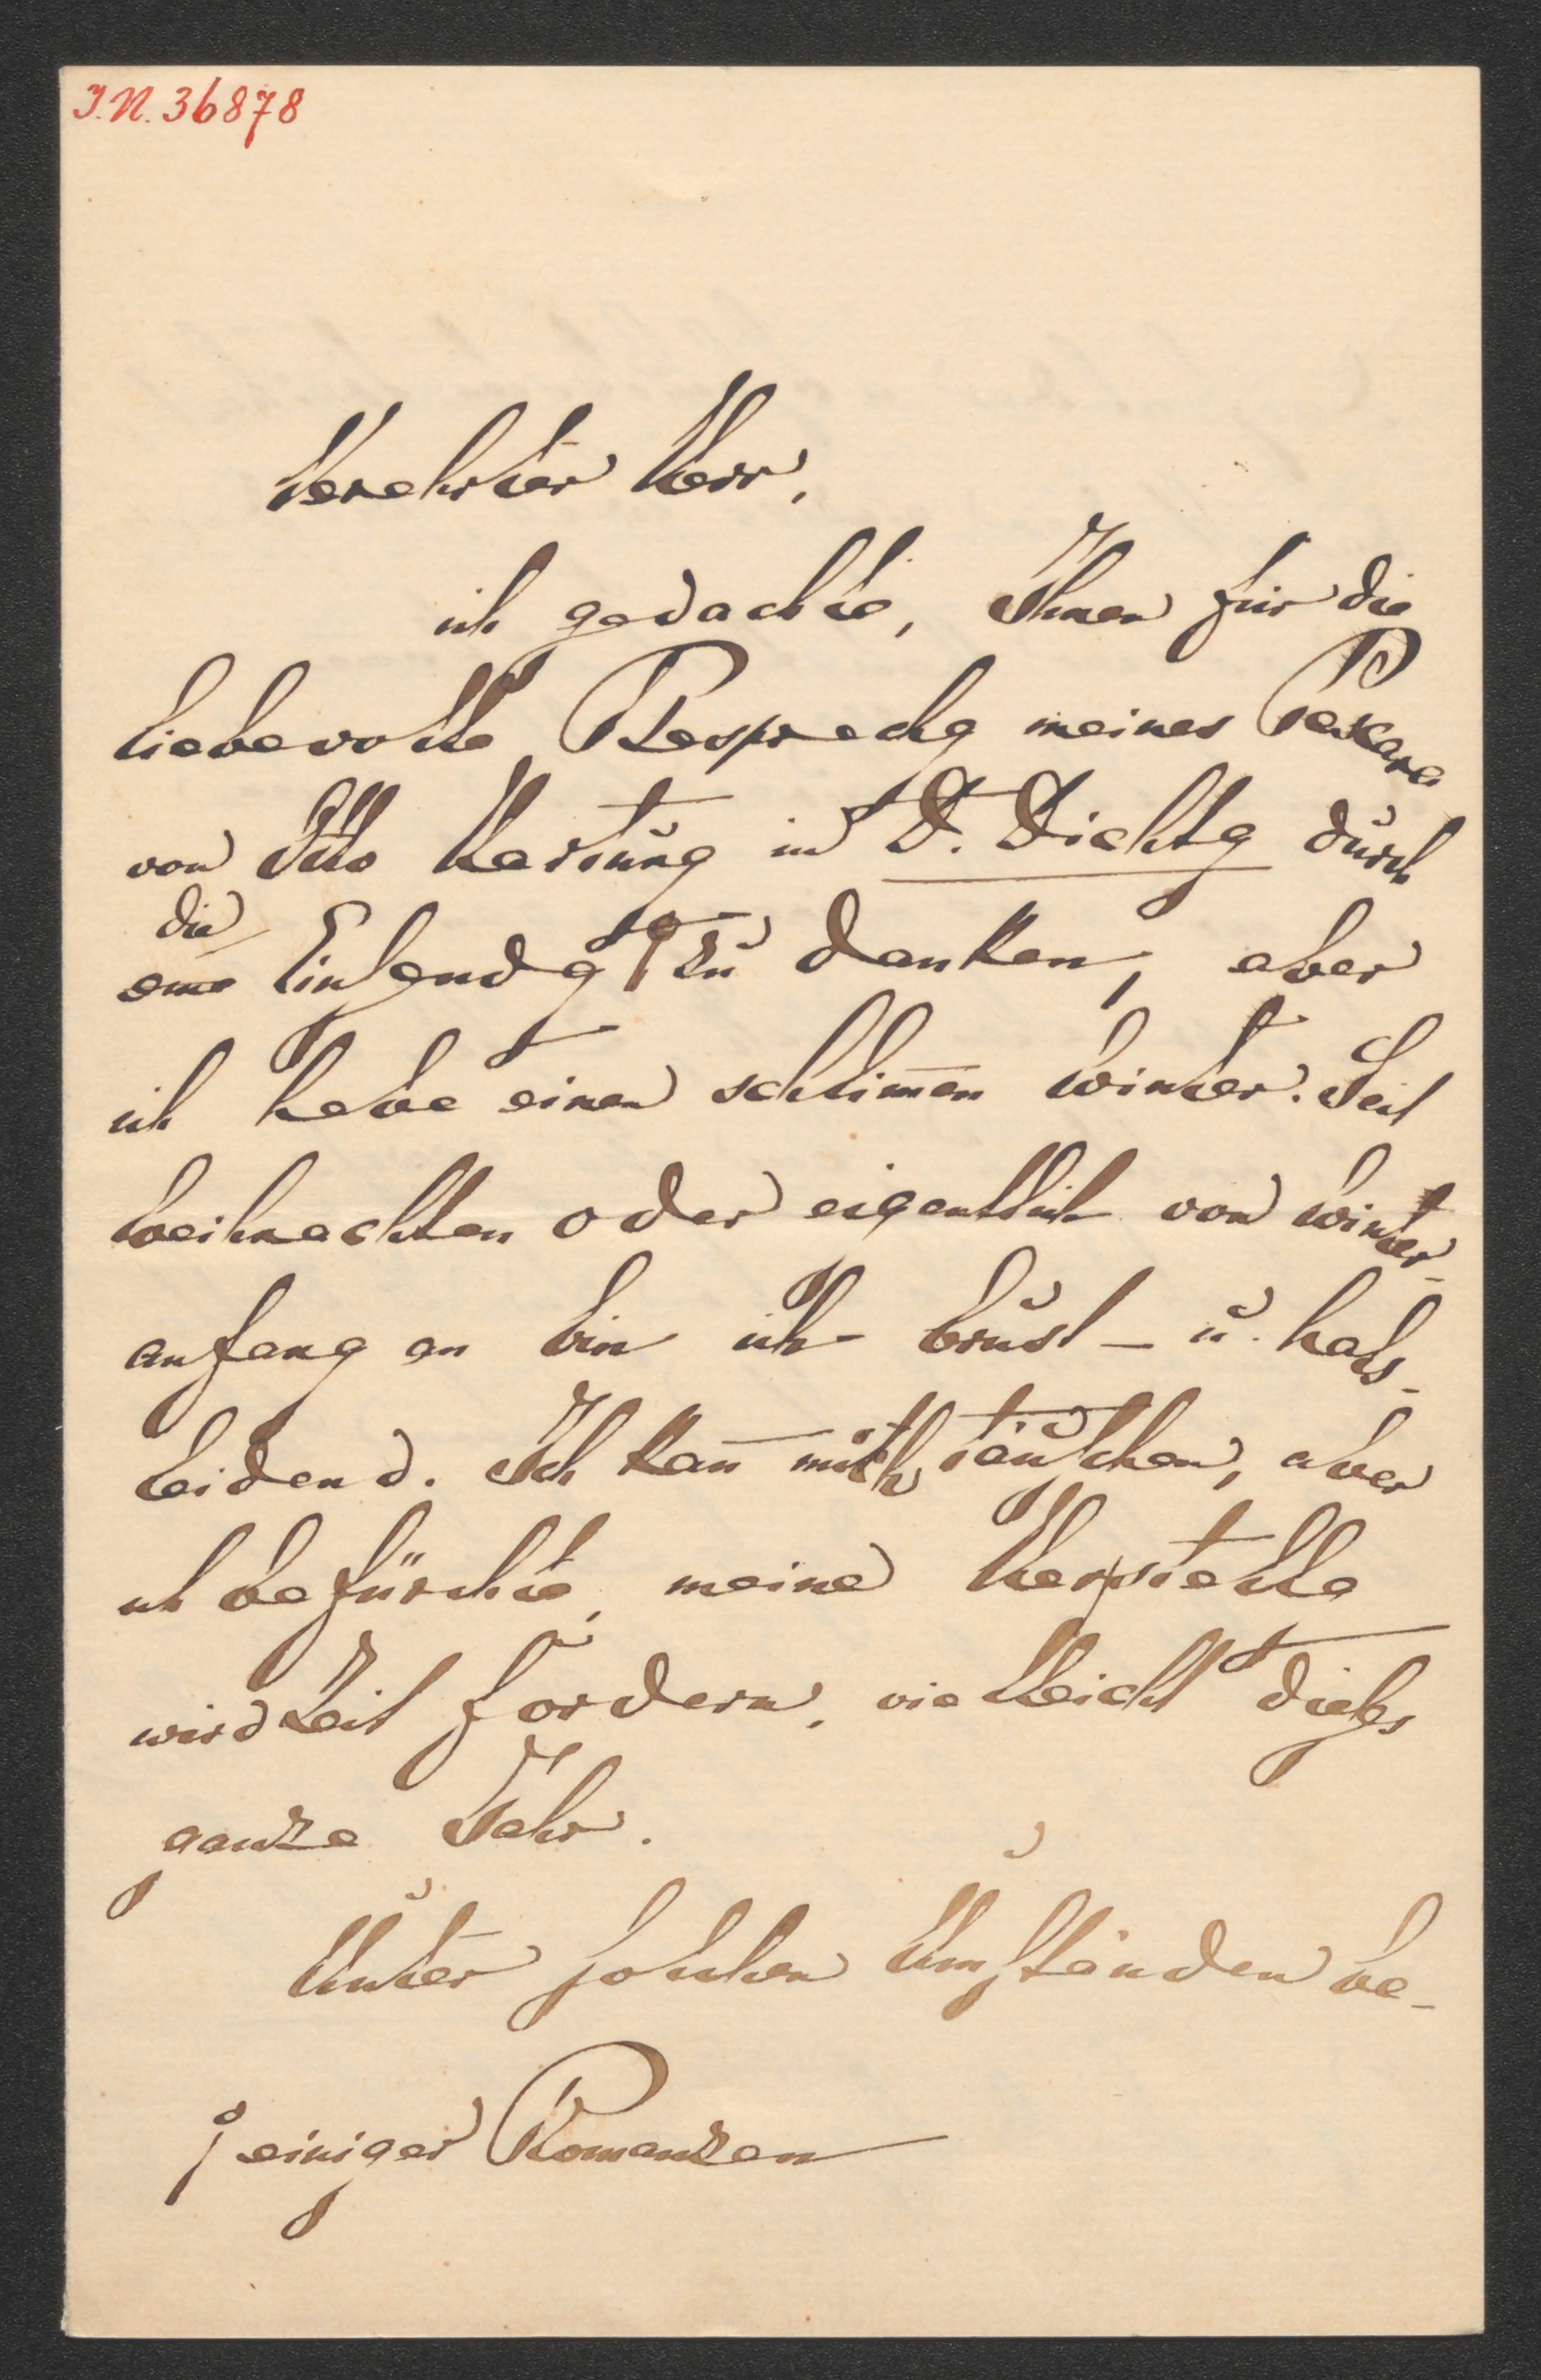 I.N. 36878
Verehrter Herr,
ich gedachte, Ihnen für die
liebevolle Besprechg meines Pescara
von Otto Hartung in D. Dichtg durch
die
eine Einsendg ꟼ zu danken, aber
ich habe einen schlim̅en Winter. Seit
Weihnachten oder eigentlich von Winter-
anfang an bin ich brust- u. hals-
leidend. Ich kan̅ mich täuschen, aber
ich befürchte, meine Herstellg
wird Zeit fordern, vielleicht dieses
ganze Jahr.
Unter solchen Umständen be-
ꟼ einiger Romanzen